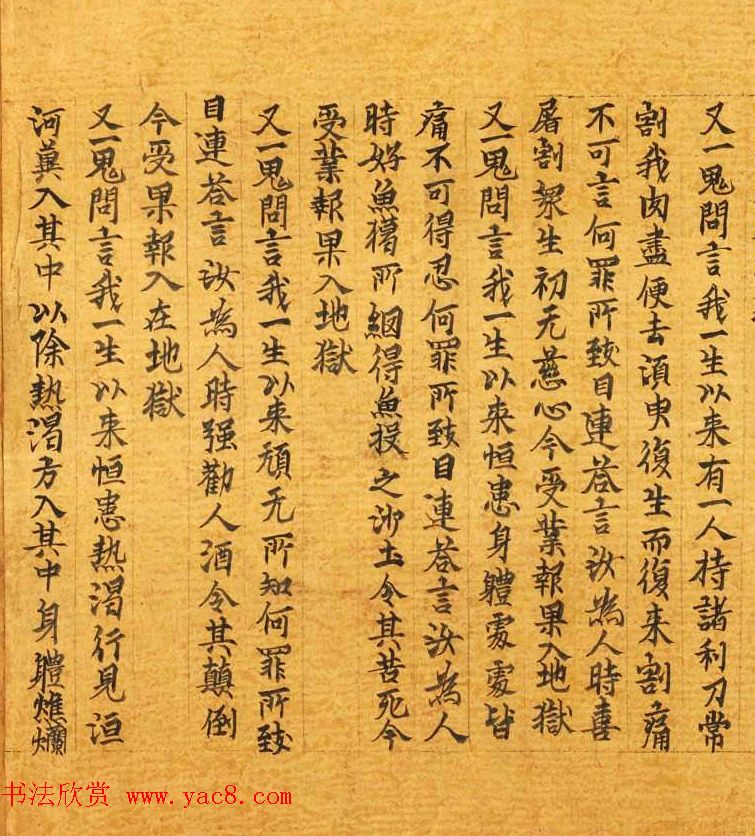 又一鬼問言我一生以来有一人持諸利刀常
割我肉盡便去須臾復生而復来割痛
不可言何罪所致目連荅言汝為人時喜
屠割衆生初无慈心今受業報果入地獄
又一鬼問言我一生以来恒患身體處處皆
痛不可得忍何罪所致目連荅言汝為人
時好魚獦所綑得魚投之沙土令其苦死今
受業報果入地獄
又一鬼問言我一生以来頑无所知何罪所致
目連荅言汝為人時强勸人酒令其顛倒
今受果報入在地獄
又一鬼問言我一生以来恒患熱渴行見洹
河冀入其中以除熱渴方入其中身體燋爛
书法欣赏 www.yac8.com